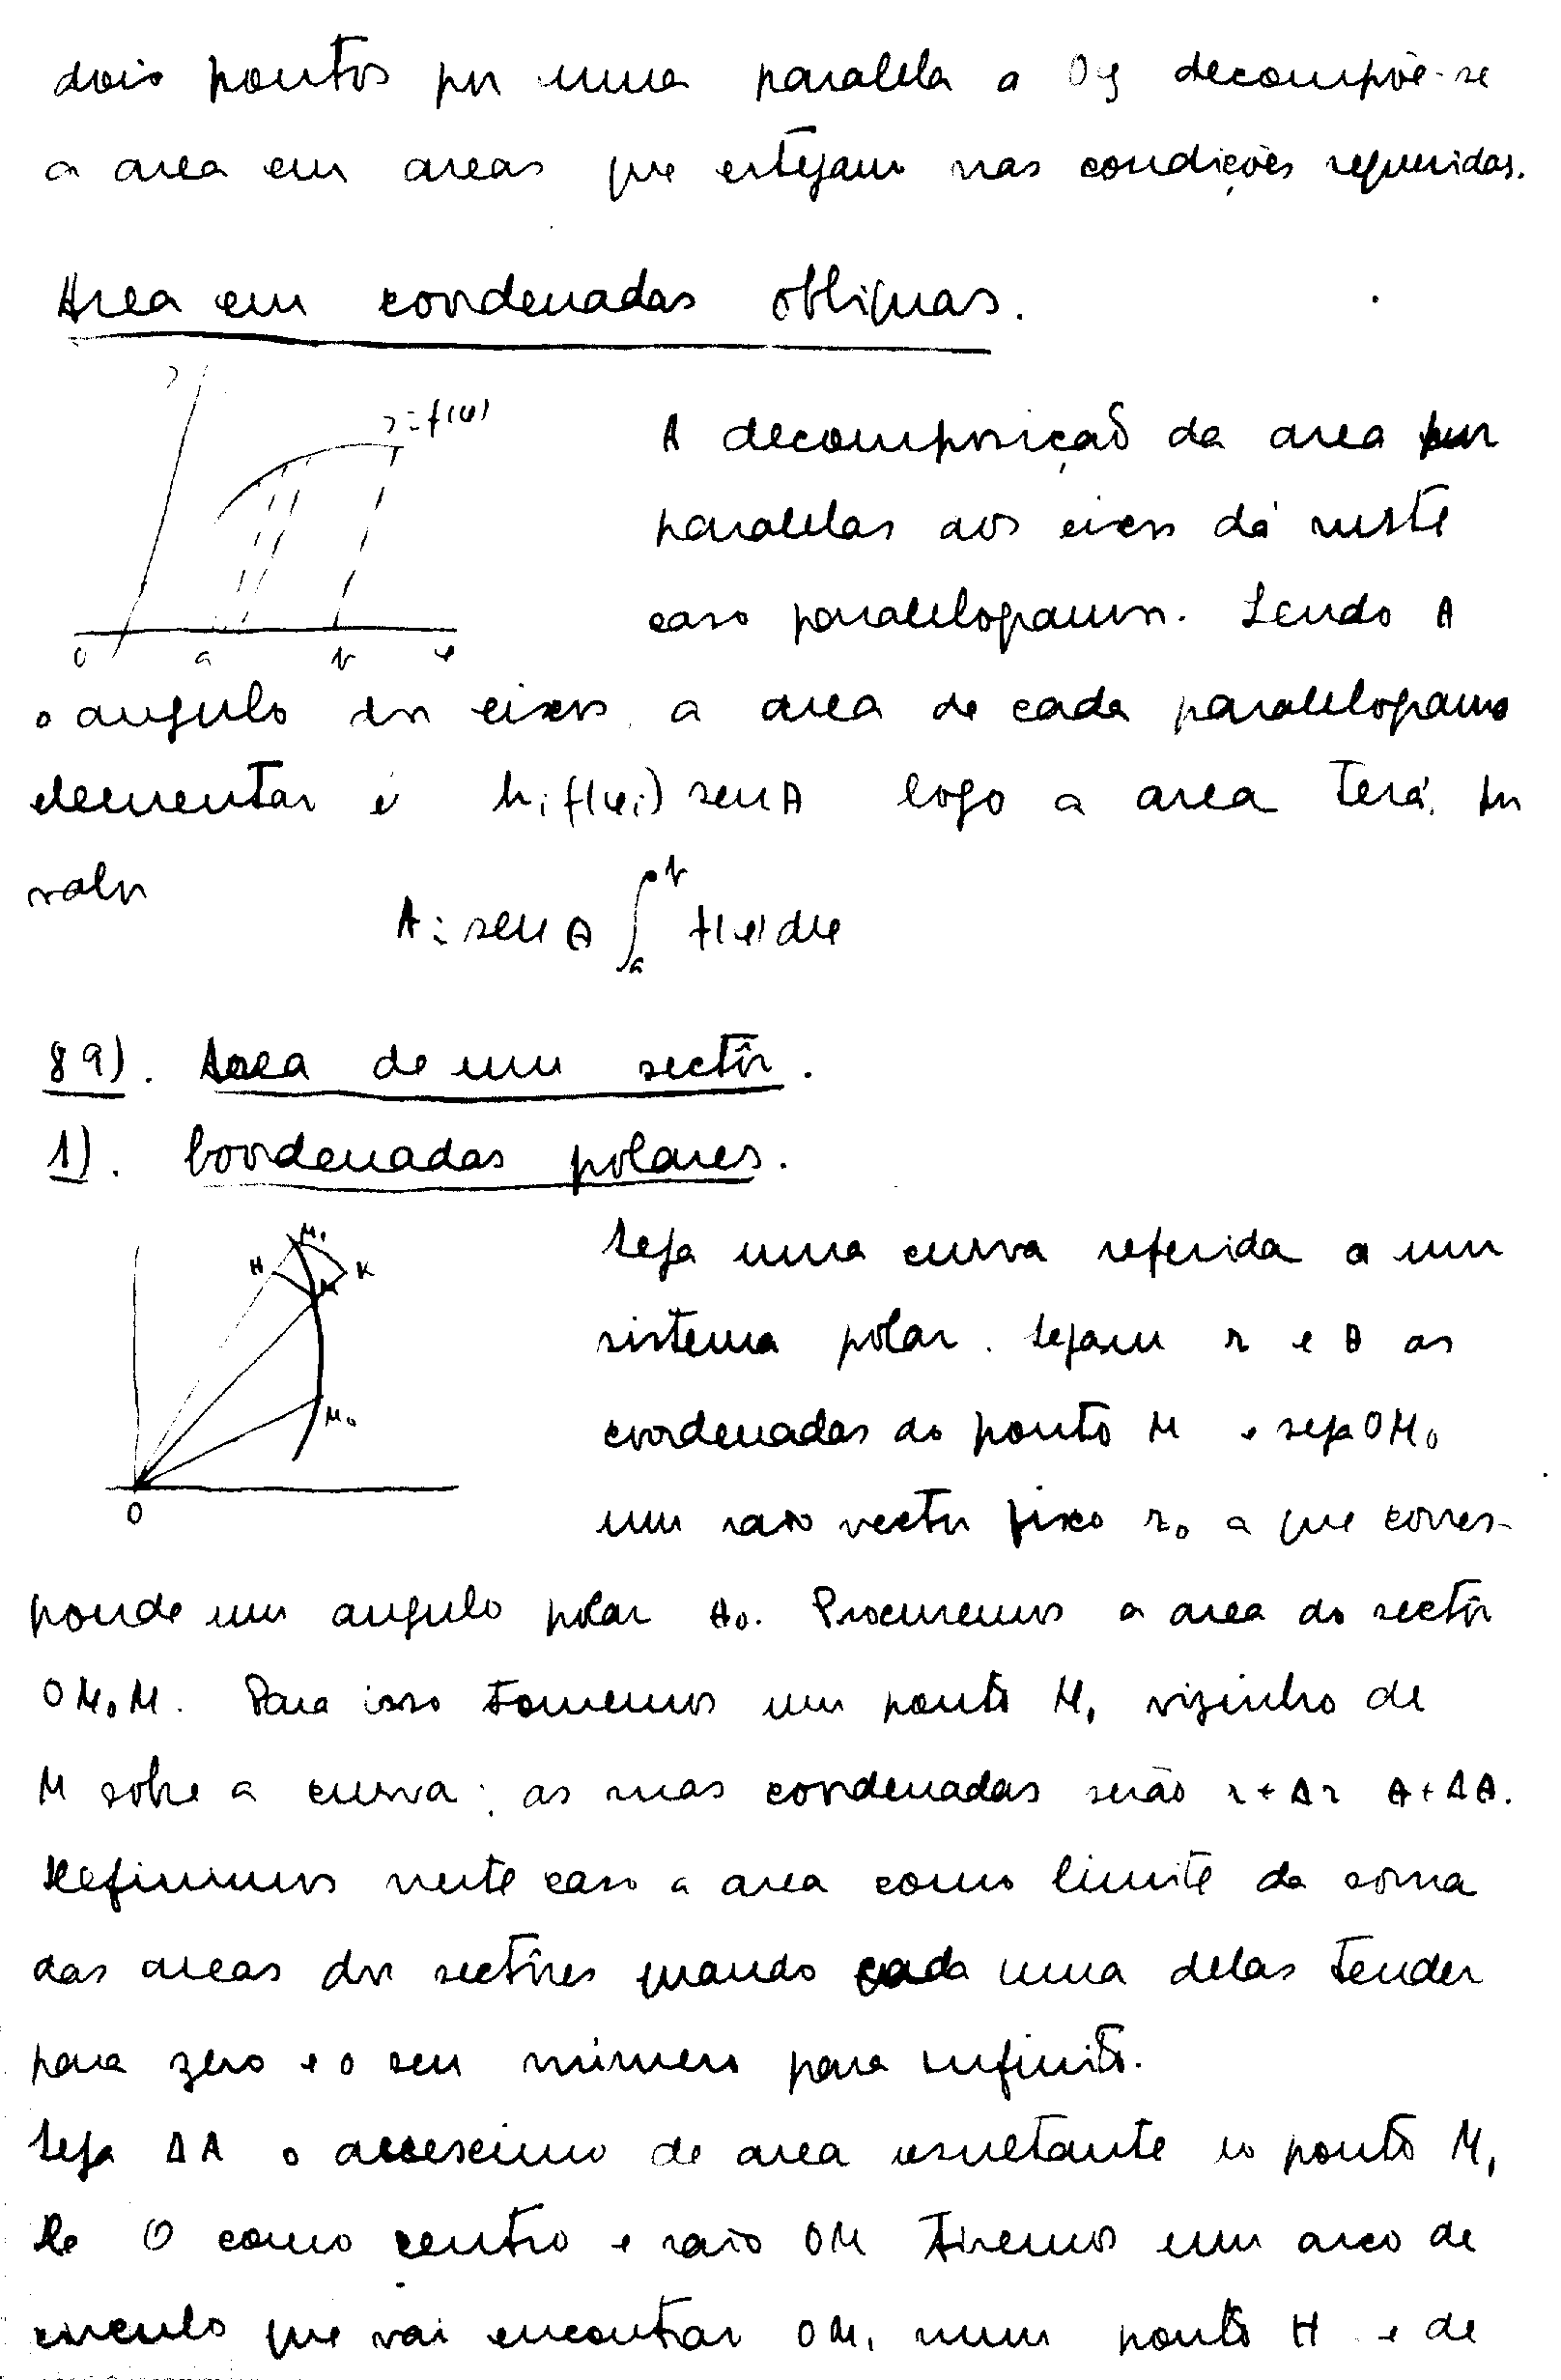 dois pontos por uma paralela a Oy decompõe-se
a area em areas que estejam nas condições requeridas.
Area em coordenadas obliquas.
y
y=f(x)
O a b x
A decomposição da area por
paralelas aos eixos dá neste
caso paralelogramos. Sendo θ
o angulo dos eixos, a area de cada paralelogramo
elementar é hi f(xi) sen θ logo a area terá por
valor
A = sen θ ∫ₐᵇ f(x) dx
89). Area de um sectôr.
1). Coordenadas polares.
M₁
H M K
M₀
O
Seja uma curva referida a um
sistema polar. Sejam r e θ as
coordenadas do ponto M e seja OM₀
um raio vector fixo r₀ a que corres-
ponde um angulo polar θ₀. Procuremos a area do sectôr
OM₀M. Para isso tomemos um ponto M₁ vizinho de
M sobre a curva; as suas coordenadas serão r+Δr θ+Δθ.
Definimos neste caso a area como limite da soma
das areas dos sectôres quando cada uma delas tender
para zero e o seu número para infinito.
Seja ΔA o acrescimo de area resultante do ponto M₁
De O como centro e raio OM tiremos um arco de
circulo que vai encontrar OM₁ num ponto H e de